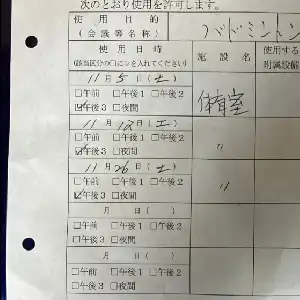 次のとおり使用を許可します。
使用目的
(会議等名称)
バドミントン
使用日時
(該当区分の□に✓を入れてください)
施設名
使用する
附属設備
11月5日(土)
□午前 □午後1 □午後2
☑午後3 □夜間
体育室
11月12日(土)
□午前 □午後1 □午後2
☑午後3 □夜間
〃
11月26日(土)
□午前 □午後1 □午後2
☑午後3 □夜間
〃
月 日( )
□午前 □午後1 □午後2
□午後3 □夜間
月 日( )
□午前 □午後1 □午後2
□午後3 □夜間